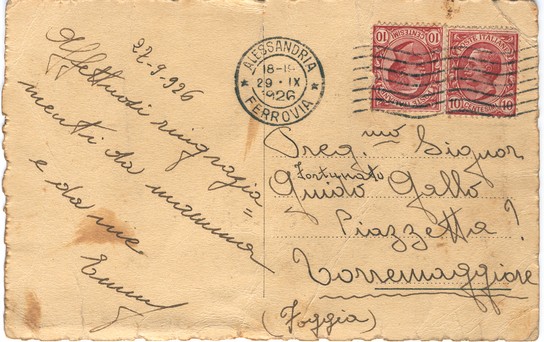 22-9-926
Affettuosi ringrazia=
menti da mamma
e da me
ALESSANDRIA
18-19
29·IX
1926
FERROVIA
CENTESIMI
10 10
POSTE ITALIANE
10 CENTESIMI 10
Preg.mo Signor
Fortunato
Guido Gallo
Piazzetta!
Torremaggiore
(Foggia)